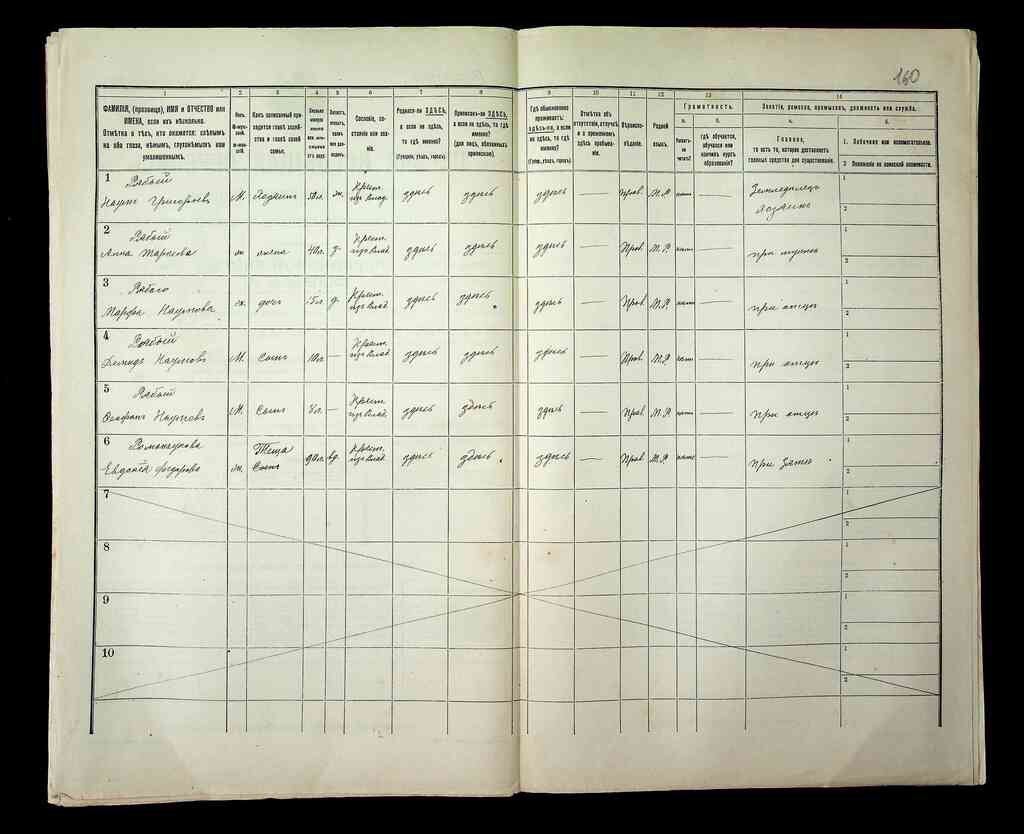 160
1 2 3 4 5 6 7 8 9 10 11 12 13 14
ФАМИЛІЯ, (прозвище), ИМЯ и ОТЧЕСТВО или
ИМЕНА, если ихъ нѣсколько.
Отмѣтка о тѣхъ, кто окажется: слѣпымъ
на оба глаза, нѣмымъ, глухонѣмымъ или
умалишеннымъ.
Полъ.
М-муж-
ской.
Ж-жен-
скій.
Какъ записанный при-
ходится главѣ хозяй-
ства и главѣ своей
семьи.
Сословіе, со-
стояніе или зва-
ніе.
Родился-ли ЗДѢСЬ,
а если не здѣсь,
то гдѣ именно?
(Губернія, уѣздъ, городъ).
Приписанъ-ли ЗДѢСЬ,
а если не здѣсь, то гдѣ
именно?
(для лицъ, обязанныхъ
припискою).
Гдѣ обыкновенно
проживаетъ:
здѣсь-ли, а если
не здѣсь, то гдѣ
именно?
(Губер., уѣздъ, городъ).
Отмѣтка объ
отсутствіи, отлучкѣ
и о временномъ
здѣсь пребыва-
ніи.
Вѣроиспо-
вѣданіе.
Родной
языкъ.
Грамотность.
а. б.
Умѣетъ-
ли
читать?
гдѣ обучается,
обучался или
кончилъ курсъ
образованія?
Занятіе, ремесло, промыселъ, должность или служба.
а. б.
Главное,
то есть то, которое доставляетъ
главныя средства для существованія.
1. Побочное или вспомогательное.
2. Положеніе по воинской повинности.
1 Рябой
Наумъ Григорьевъ М. Хозяинъ 50 л. ж. Крест. изъ влад. здѣсь здѣсь здѣсь — Прав. М.Р. нѣтъ — Земледѣлецъ
хозяинъ
1
2
2 Рябой
Анна ж жена 40л. з. Крест. изъ влад. здѣсь здѣсь здѣсь — Прав. М.Р. нѣтъ — при мужѣ
1
2
3 Рябого
Марфа Наумова ж. дочь 15л. д. Крест. изъ влад. здѣсь здѣсь здѣсь — Прав. М.Р. нѣтъ — при отцѣ
1
2
4 Рябой
Демидъ Наумовъ М. Сынъ 10л. — Крест. изъ влад. здѣсь здѣсь здѣсь — Прав. М.Р. нѣтъ — при отцѣ
1
2
5 Рябой
Наумовъ М. Сынъ — Крест. изъ влад. здѣсь здѣсь здѣсь — Прав. М.Р. нѣтъ — при отцѣ
1
2
6 Романчукова Теща
Евдокія Федорова ж. Сынъ 90л. вд. Крест. изъ влад. здѣсь здѣсь здѣсь — Прав. М.Р. нѣтъ — при зятѣ
1
2
7
1
2
8
1
2
9
1
2
10
1
2